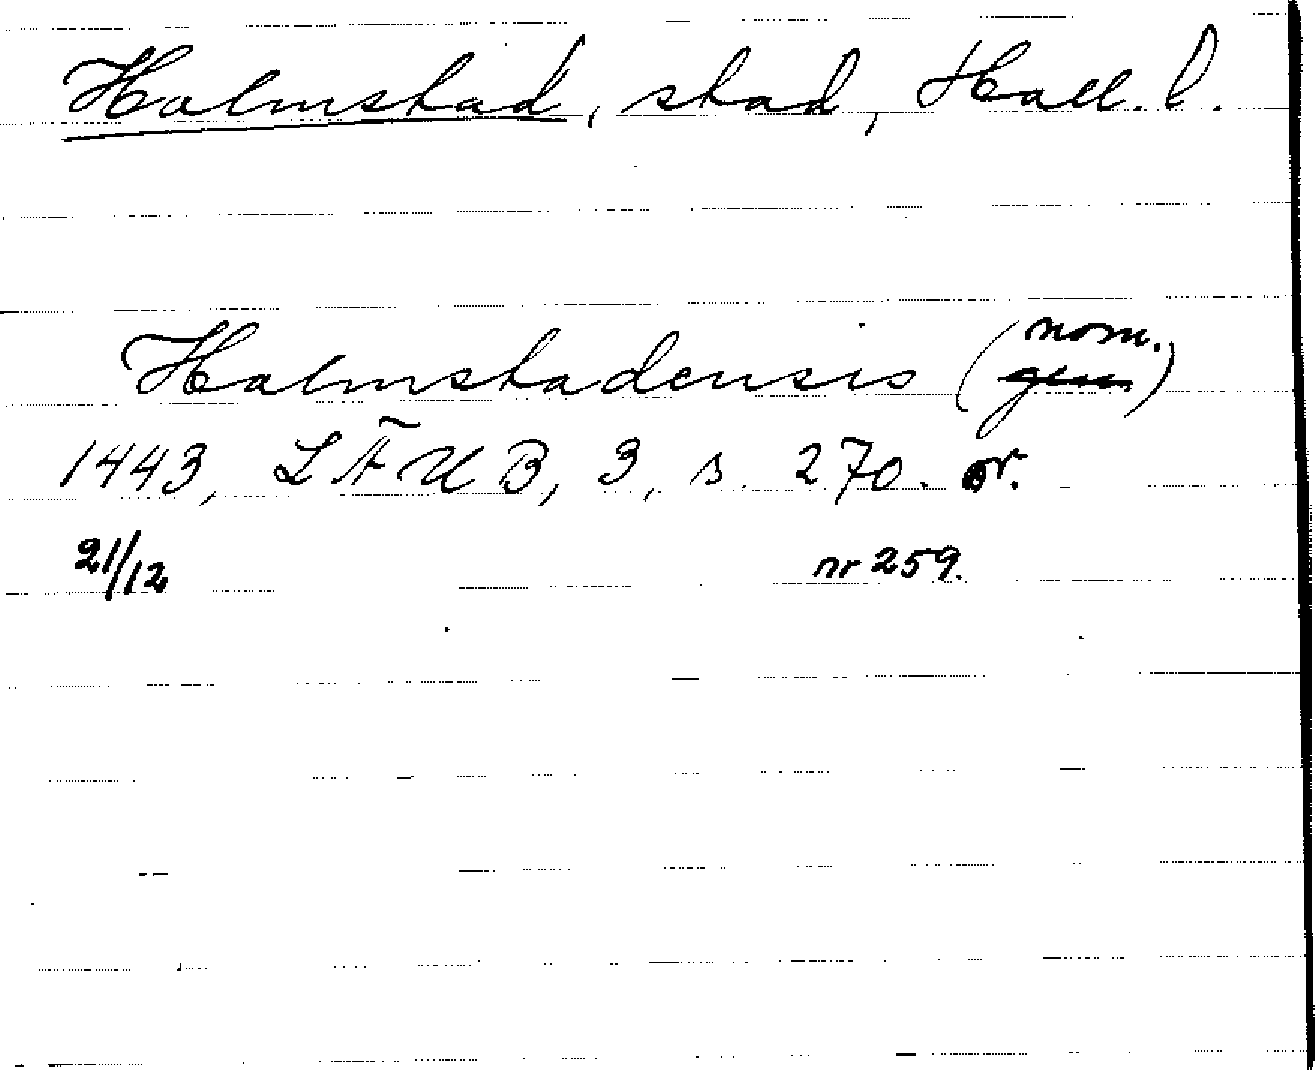 Halmstad, stad, Hall. l.
Halmstadensis (nom. gen.)
1443, LÄUB, 3, s. 270. or.
21/12 nr 259.